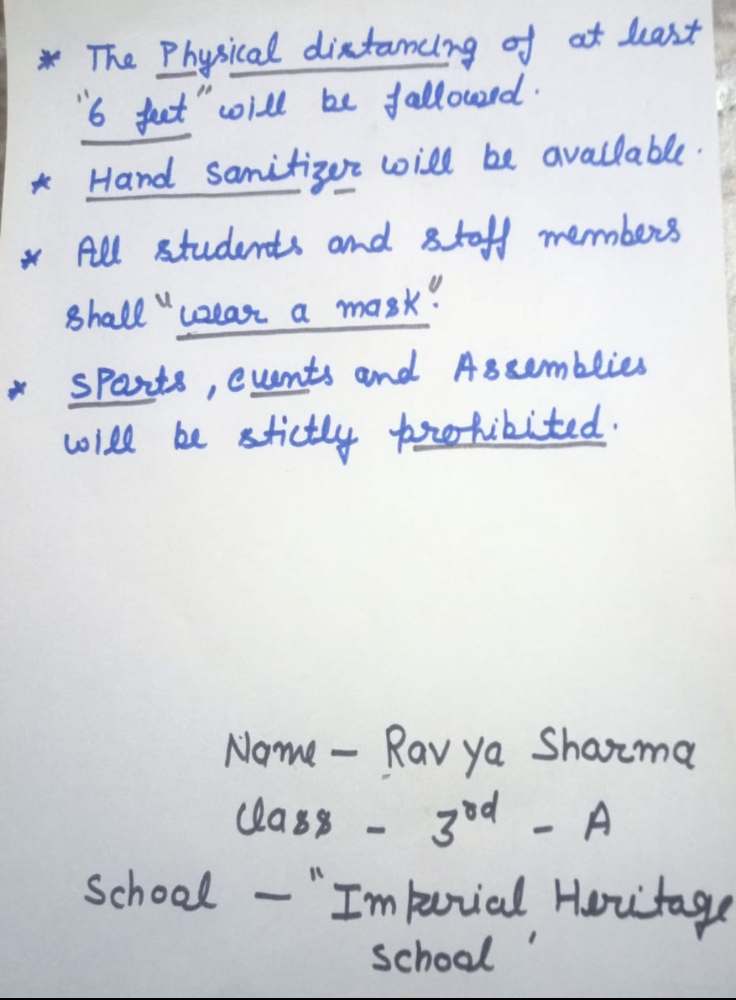 * The Physical distancing of at least
"6 feet" will be fallowed.
* Hand sanitizer will be available.
* All students and staff members
shall "wear a mask".
* Sparts, events and Assemblies
will be stictly prohibited.
Name - Ravya Sharma
Class - 3rd - A
School - "Imperial Heritage
School'